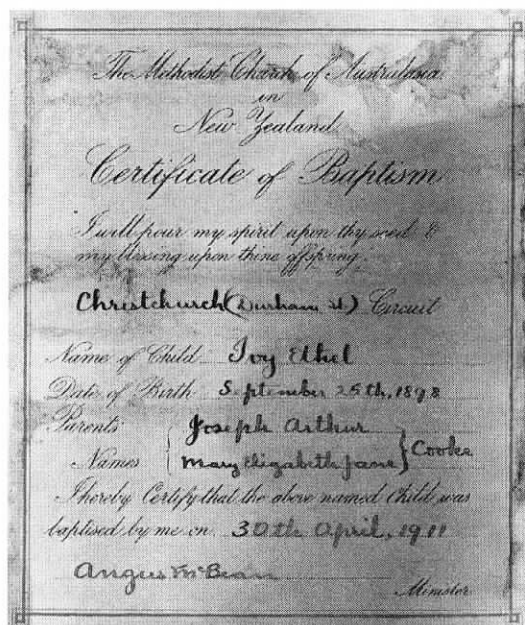 The Methodist Church of Australasia
in
New Zealand
Certificate of Baptism
I will pour my spirit upon thy seed &
my blessing upon thine offspring.
Christchurch (Durham St.) Circuit
Name of Child Ivy Ethel
Date of Birth September 25th, 1898
Parents Joseph Arthur
Names Mary Elizabeth Jane Cooke
I hereby Certify that the above named Child was
baptised by me on 30th April, 1911
Angus McBean
Minister